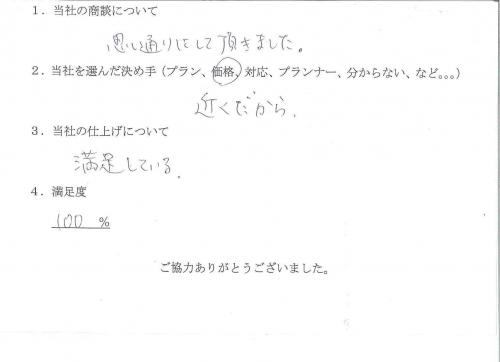 1．当社の商談について
思い通りにして頂きました。
2．当社を選んだ決め手（プラン、価格、対応、プランナー、分からない、など。。。）
近くだから.
3．当社の仕上げについて
満足している.
4．満足度
100 %
ご協力ありがとうございました。